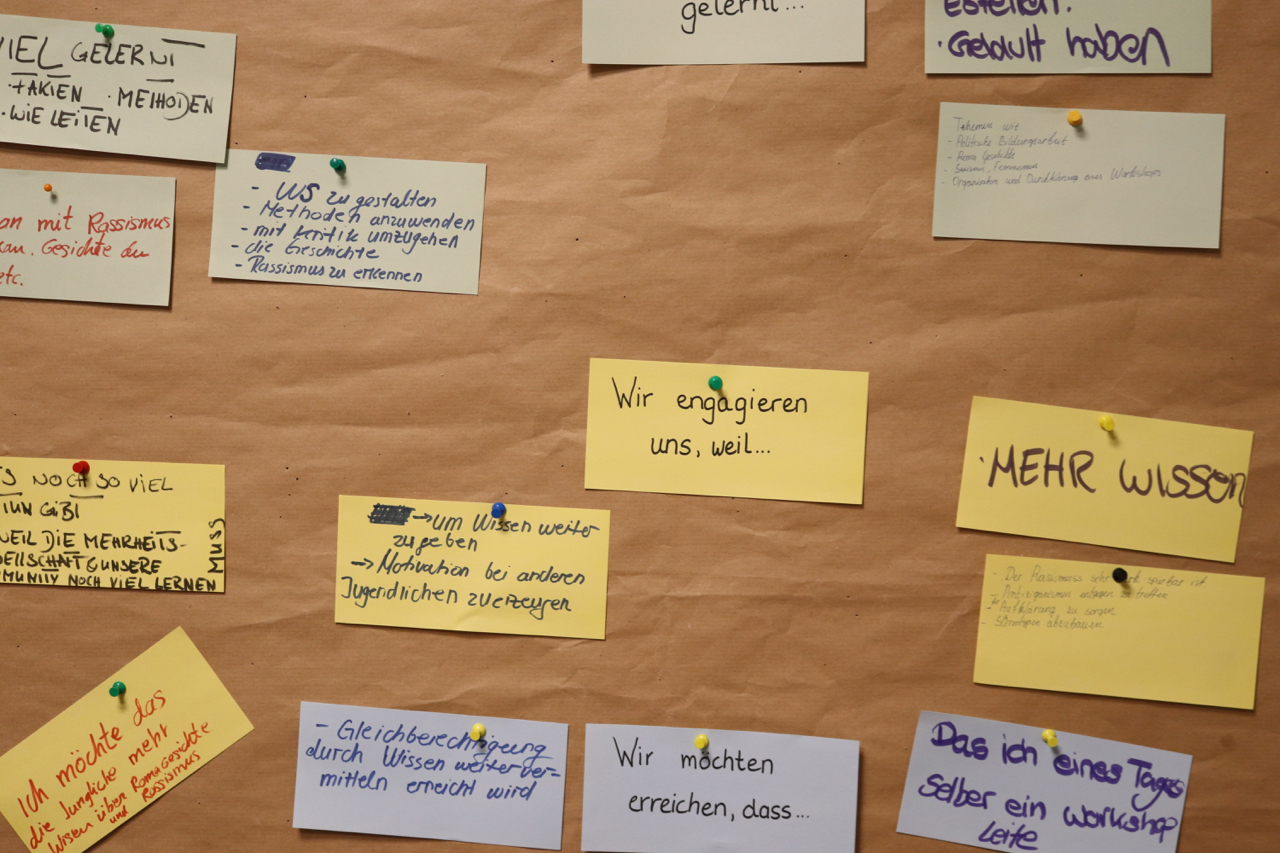 gelernt...
· Geldult haben
VIEL GELERNT
· FAKTEN · METHODEN
· WIE LEITEN
- WS zu gestalten
- Methoden anzuwenden
- mit Kritik umzugehen
- die Geschichte
- Rassismus zu erkennen
an mit Rassismus
Gesichte
etc.
- Politische Bildungsarbeit
- Roma Geschichte
- Organisation und Durchführung eines Workshops
Wir engagieren
uns, weil...
· MEHR WISSEN
NOCH SO VIEL
TUN GIBT
WEIL DIE MEHRHEITS-
GESELLSCHAFT & UNSERE
NOCH VIEL LERNEN
MUSS
→ um Wissen weiter
zugeben
→ Motivation bei anderen
Jugendlichen zu erzeugen
- Der Rassismuss sehr stark spürbar ist
- Antiziganismus entgegen zu treffen
- Aufklärung zu sorgen
abzubauen
Ich möchte das
die Jungliche mehr
Wisen über Roma Gesichte
und Rassismus
- Gleichberechtigung
durch Wissen weiterver-
mitteln erreicht wird
Wir möchten
erreichen, dass...
Das ich eines Tages
selber ein workshop
Leite